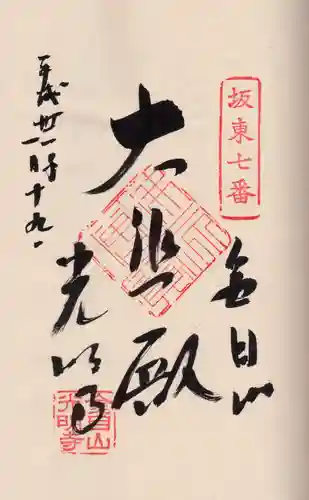 坂東七番
金目山
大悲殿
光明寺
平成廿一年
一月十九日
金目山
光明寺